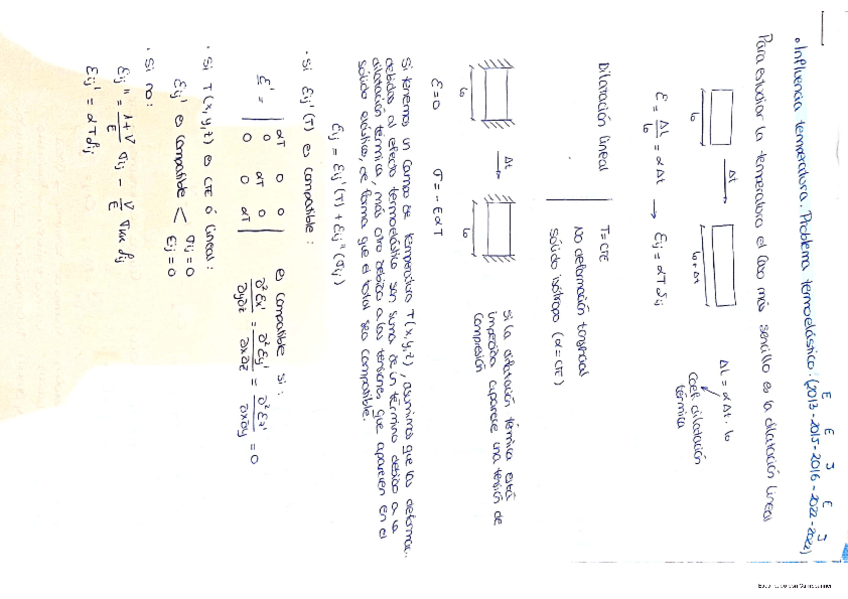 E E J E J
• Influencia temperatura. Problema termoelástico. (2013-2015-2016-2022-2022)
Para estudiar la temperatura el caso más sencillo es la dilatación lineal
Δt
l₀
l₀ + Δt
ΔL = α Δt · l₀
coef. dilatación
térmica
ε = ΔL/l₀ = α Δt → εij = αTδij
Dilatación lineal
T = CTE
NO deformación tangencial
sólido isótropo (α = CTE)
Δt
l₀
l₀
Si la dilatación térmica está
impedida aparece una tensión de
compresión
ε = 0 σ = -EαT
Si tenemos un campo de temperatura T(x,y,z), asumimos que las deformac.
debidas al efecto termoelástico son suma de un término debido a la
dilatación térmica, más otro debido a las tensiones que aparecen en el
sólido elástico, de forma que el total sea compatible.
εij = εij'(T) + εij''(σij)
· Si εij'(T) es compatible:
ε' = | αT 0 0 |
| 0 αT 0 |
| 0 0 αT |
es compatible si:
∂²εx'/∂y∂z = ∂²εy'/∂x∂z = ∂²εz'/∂x∂y = 0
· Si T(x,y,z) es CTE ó lineal:
εij' es compatible < σij = 0
εij = 0
· Si no:
εij'' = 1+ν/E σij - ν/E σkk δij
εij' = αTδij